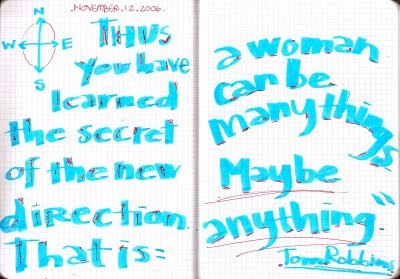 .NOVEMBER.12.2006.
N
W E
S
Thus
you have
learned
the secret
of the new
direction.
That is:
a woman
can be
many things
Maybe
anything."
Tom Robbins